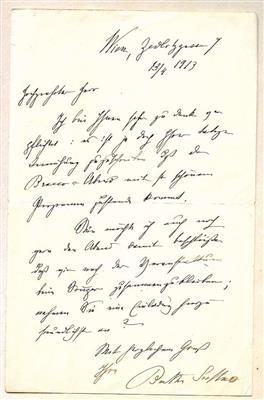 Wien, Zedlitzgasse 7
13/4 1913
Hochgeehrter Herr
Ich bin Ihnen sehr zu Dank ver
pflichtet: es ist ja doch Ihrer
Bemühung zuzuschreiben daß der
Abend mit so schönem
Programm zustande kommt.
Nun möchte ich auch noch
gern den Abend damit beschließen
daß wir nach der Veranstaltung
beim zusammenzubleiben;
nehmen Sie eine Einladung
freundlichst an?
Mit herzlichem Gruß
Ihre